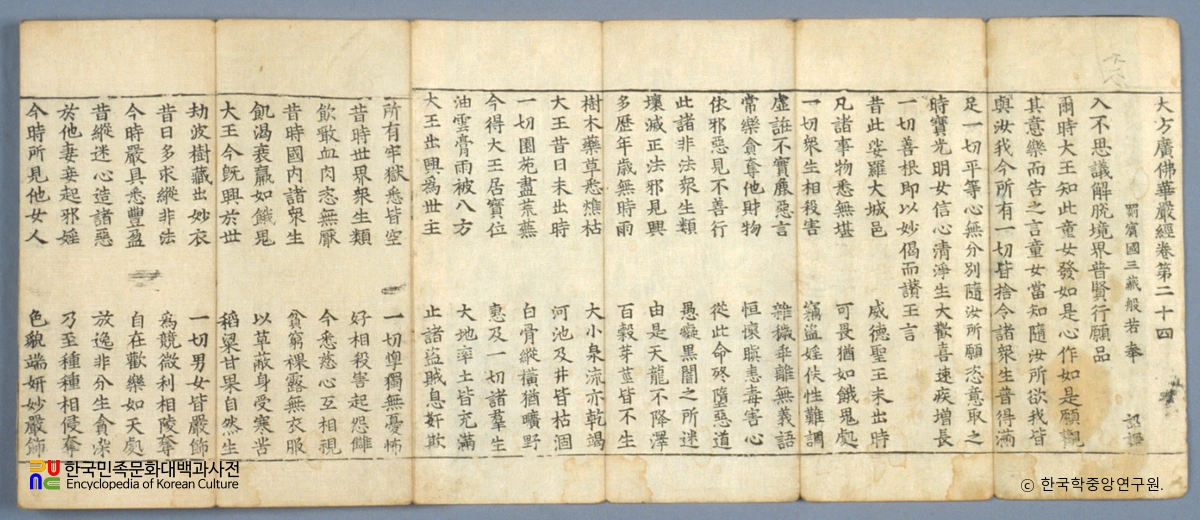 大方廣佛華嚴經卷第二十四
罽賓國三藏般若奉 詔譯
入不思議解脫境界普賢行願品
爾時大王知此童女發如是心作如是願觀
其意樂而告之言童女當知隨汝所欲我皆
與汝我今所有一切皆捨令諸衆生普得滿
足一切平等心無分別隨汝所願恣意取之
時寶光明女信心清淨生大歡喜速疾增長
一切善根即以妙偈而讚王言
昔此娑羅大城邑 威德聖王未出時
凡諸事物悉無堪 可畏猶如餓鬼處
一切衆生相殺害 竊盜婬佚性難調
虛誑不實麤惡言 雜穢乖離無義語
常樂貪奪他財物 恒懷瞋恚毒害心
依邪惡見不善行 從此命終墮惡道
此諸非法衆生類 愚癡黑闇之所迷
壞滅正法邪見興 由是天龍不降澤
多歷年歲無時雨 百穀芽莖皆不生
樹木藥草悉燋枯 大小泉流亦乾竭
大王昔日未出時 河池及井皆枯涸
一切園苑盡荒蕪 白骨縱橫猶曠野
今得大王居寶位 惠及一切諸羣生
油雲膏雨被八方 大地率土皆充滿
大王出興爲世主 止諸盜賊息奸欺
所有牢獄悉皆空 一切惸獨無憂怖
昔時世界衆生類 好相殺害起怨讎
飮噉血肉恣無厭 今悉慈心互相視
昔時國內諸衆生 貧窮裸露無衣服
飢渴衰羸如餓鬼 以草蔽身受寒苦
大王今旣興於世 稻粱甘果自然生
劫波樹藏出妙衣 一切男女皆嚴飾
昔日多求縱非法 爲競微利相陵奪
今時嚴具悉豐盈 自在歡樂如天處
昔縱迷心造諸惡 放逸非分生貪染
於他妻妾起邪婬 乃至種種相侵奪
今時所見他女人 色貌端姸妙嚴飾
한국민족문화대백과사전
Encyclopedia of Korean Culture
ⓒ 한국학중앙연구원.